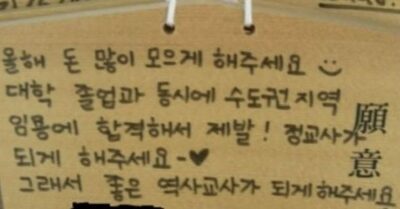 올해 돈 많이 모으게 해주세요 ☺
대학 졸업과 동시에 수도권 지역
임용에 합격해서 제발! 정교사가
되게 해주세요~♥
그래서 좋은 역사교사가 되게해주세요
願意